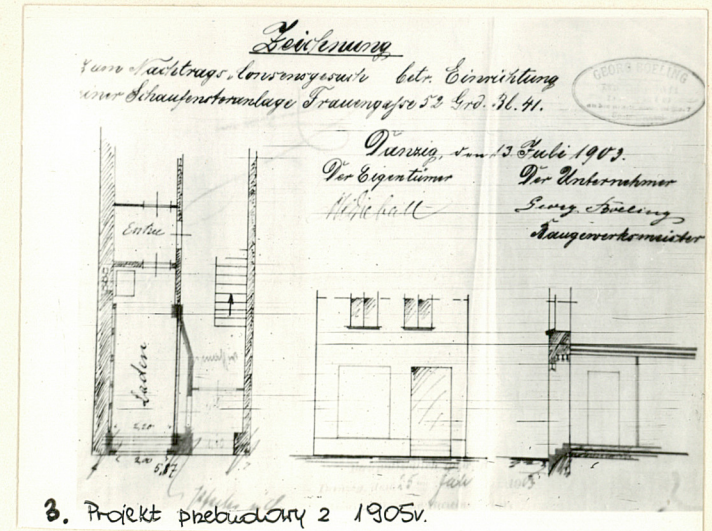 Zeichnung
zum Nachtrags-Consensgesuch betr. Einrichtung
einer Schaufensteranlage Frauengasse 52 Grd. Bl. 41.
GEORG BOELING
Danzig, den 13 Juli 1903.
Der Eigentümer
Der Unternehmer
Georg Boeling
Baugewerksmeister
Entree
Laden
2,20
2,00
5,07
3. Projekt przebudowy z 1905r.